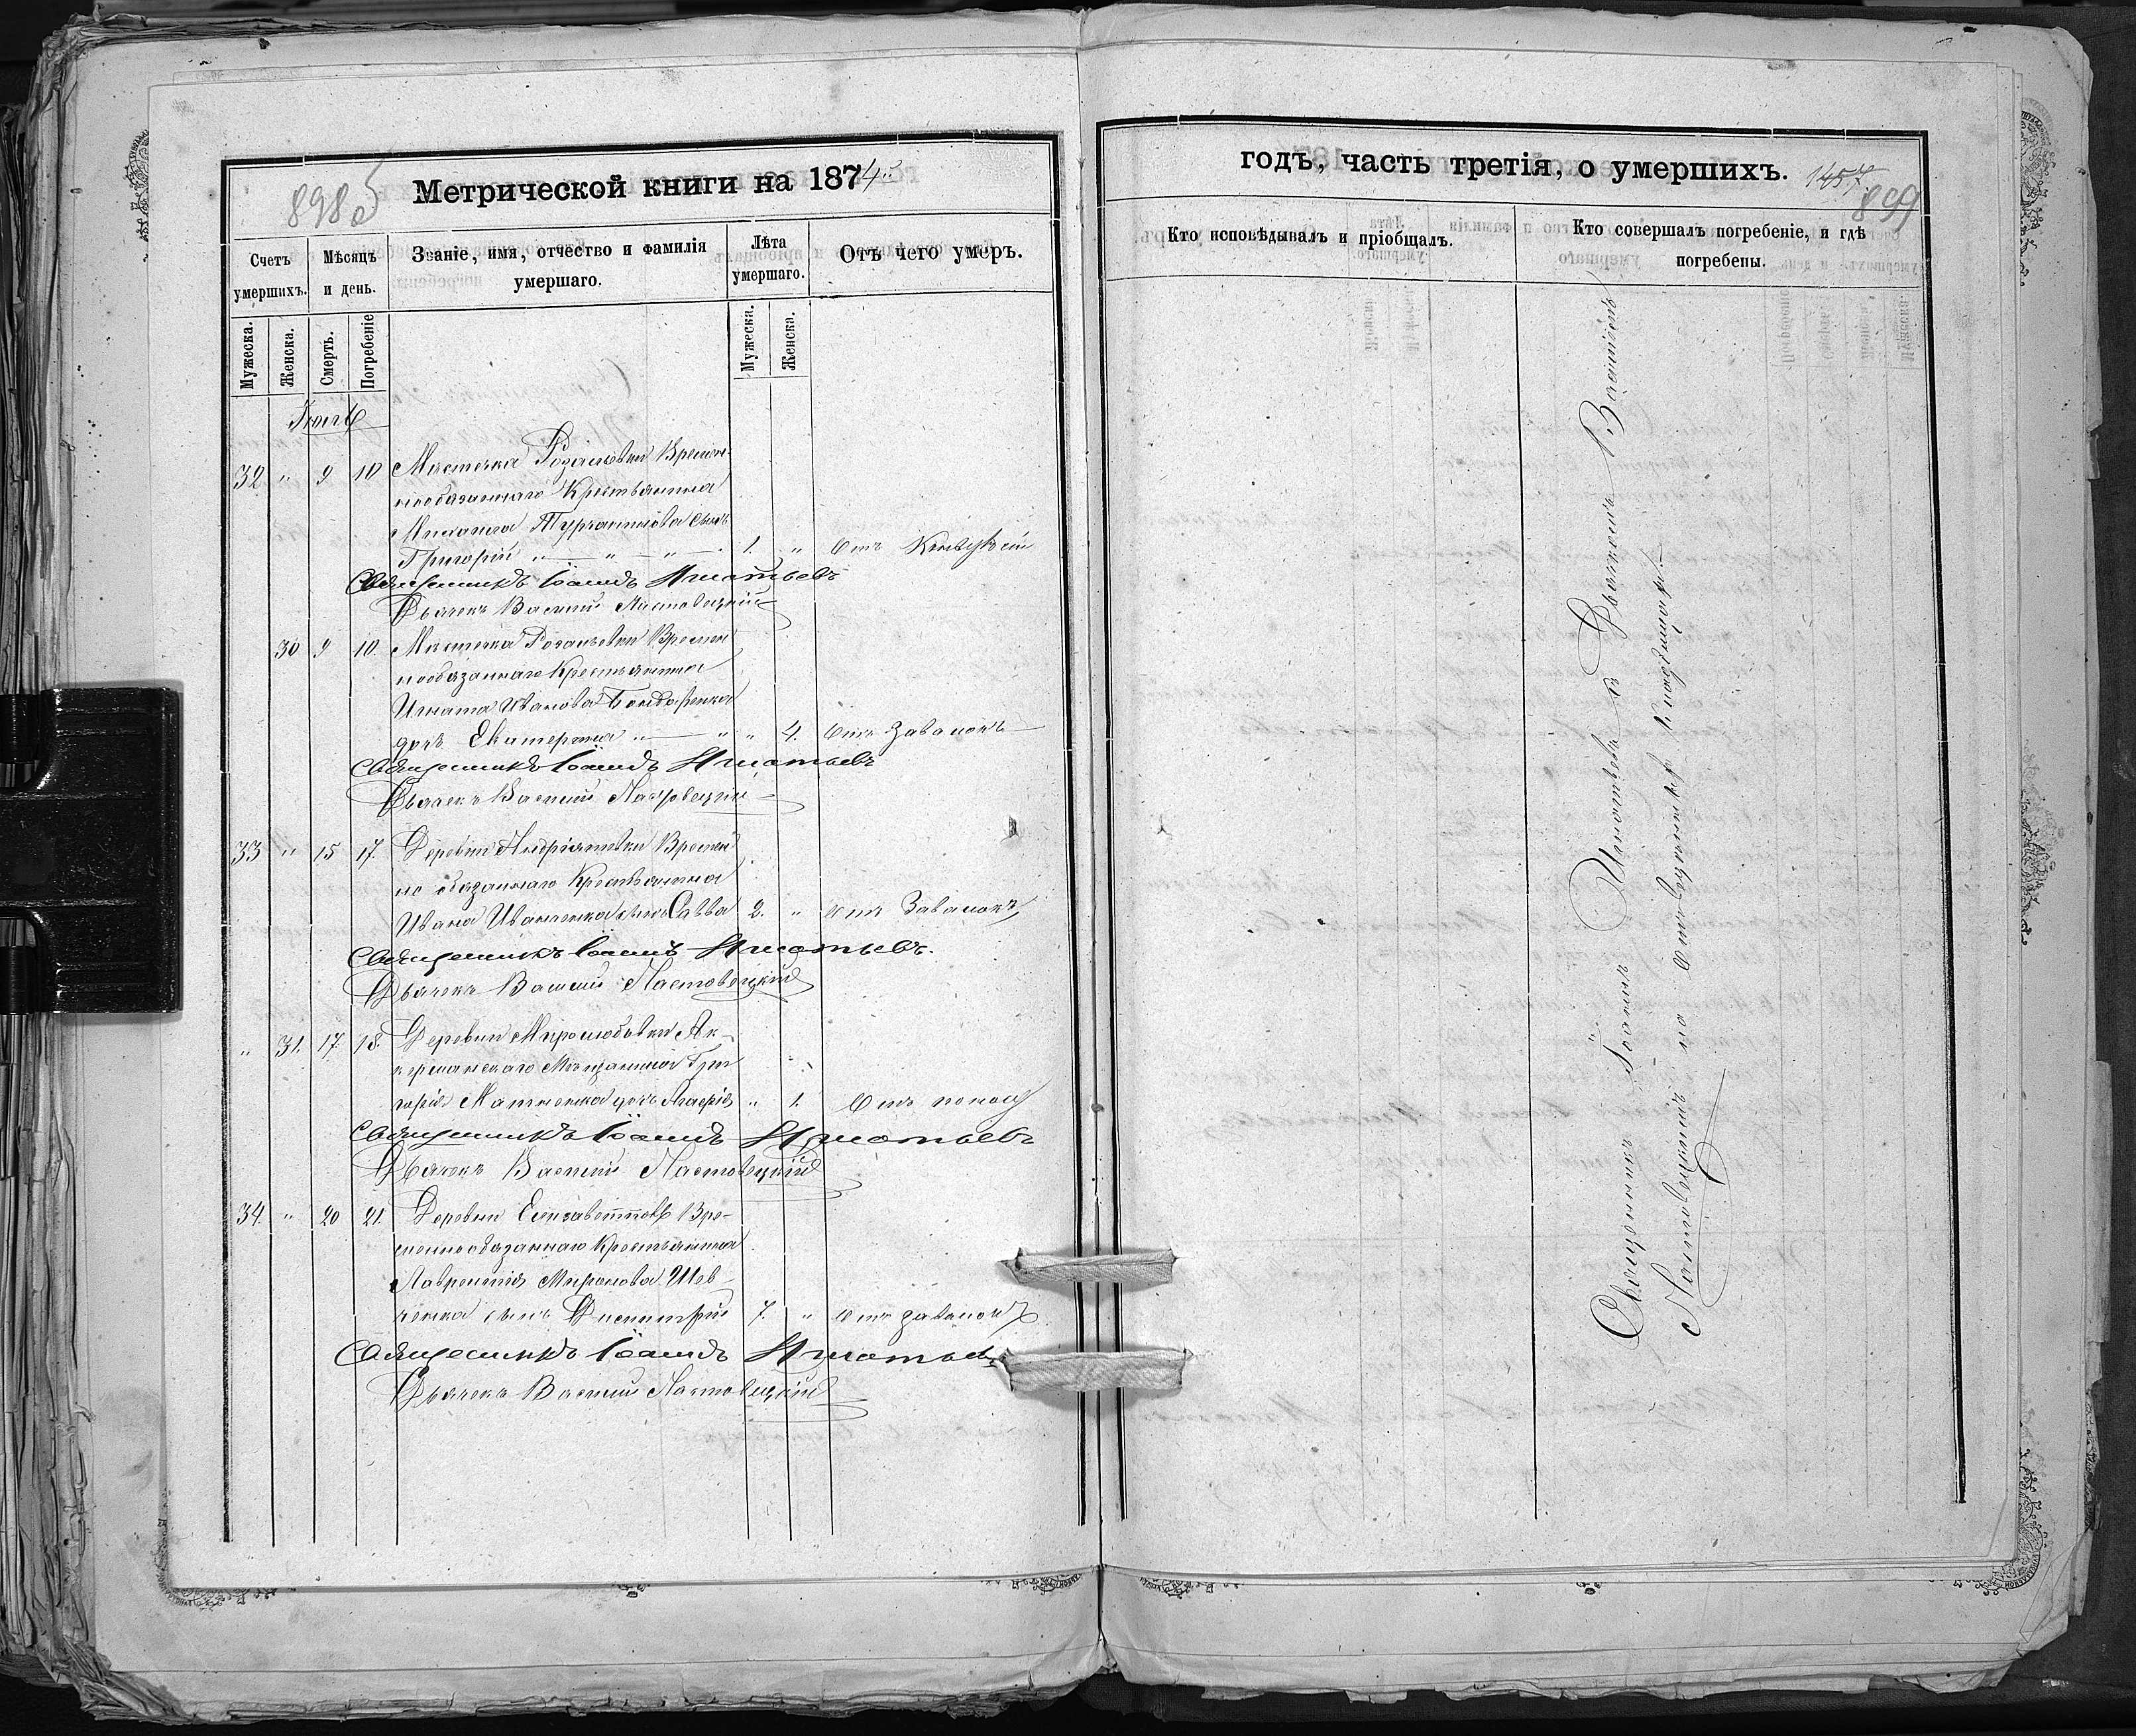 898 б
Метрической книги на 1874
Счетъ умершихъ.
Мѣсяцъ и день.
Званіе, имя, отчество и фамилія умершаго.
Лѣта умершаго.
Отъ чего умеръ.
Мужеска.
Женска.
Смерть.
Погребеніе
Мужеска.
Женска.
32 " 9 10 Мѣстечка Розаліевки Времен-
нообязаннаго Крестьянина
Михаила сынъ
Григорій 1. " Отъ
Священникъ Іоаннъ Игнатьевъ
Дьячекъ Василий Ластовецкій
30 9 10. Мѣстечка Розаліевки Времен
нообязаннаго Крестьянина
Игната Иванова Бондаренка
дочь Екатерина " 4. Отъ Завалокъ
Священникъ Іоаннъ Игнатьевъ
Дьячекъ Василий Ластовецкій
33 " 15 17. Деревни Андріяшевки Времен
но обязаннаго Крестьянина
Ивана Иваненка сынъ Савва 2. " Отъ Завалокъ
Священникъ Іоаннъ Игнатьевъ.
Дьячекъ Василий Ластовецкій
" 31. 17 18. Деревни Миролюбовки Ак-
керманскаго Мѣщанина Гри
горія дочь " 1. Отъ
Священникъ Іоаннъ Игнатьевъ
Дьячекъ Василий Ластовецкій
34. " 20 21. Деревни Елизаветовки Вре-
меннообязаннаго Крестьянина
Лаврентія Миронова Шев-
ченка сынъ Димитрий 7. " Отъ завалокъ
Священникъ Іоаннъ Игнатьевъ
Дьячекъ Василий Ластовецкій
годъ, часть третія, о умершихъ.
1457
899
Кто исповѣдывалъ и пріобщалъ.
Кто совершалъ погребеніе, и гдѣ погребены.
Священникъ Іоаннъ Игнатьевъ съ Дьячкомъ Василіемъ
Ластовецкимъ на отведенномъ кладбищѣ.